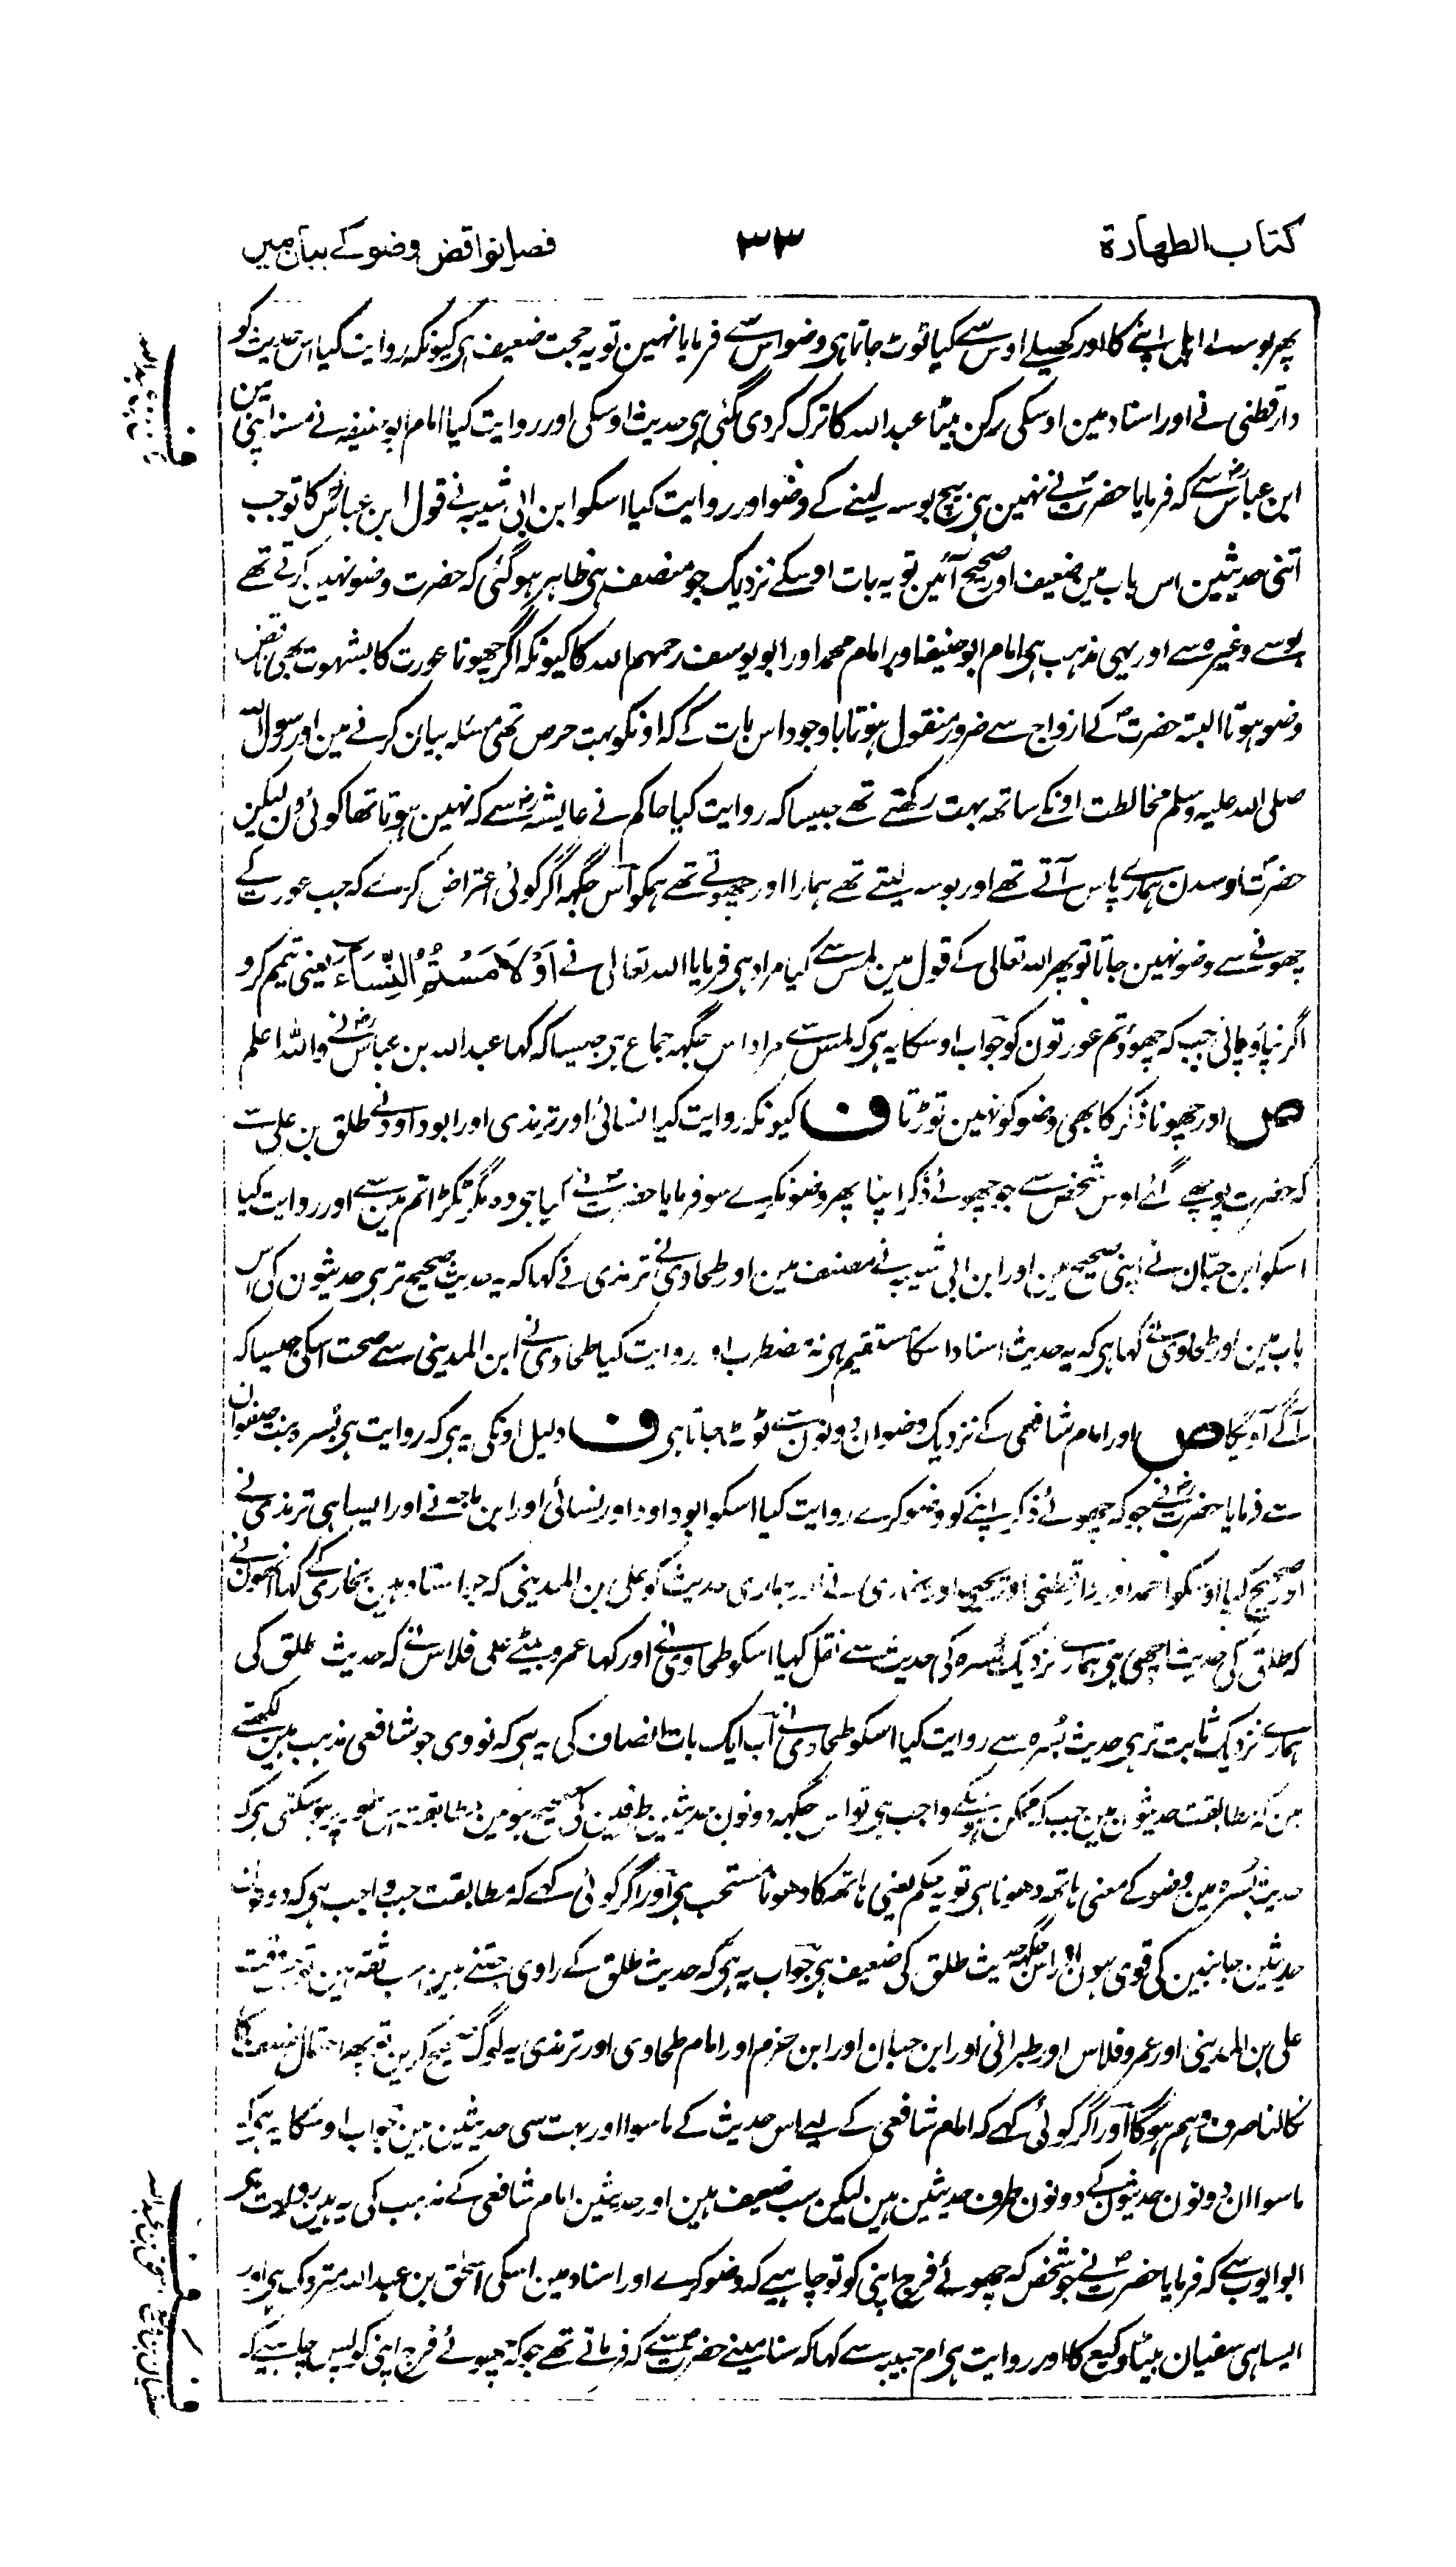 کتاب الطهارة
۳۳
فصل نواقض وضو کے بیان میں
پھر بوسہ لے اہل اپنے کا اور کھیلے اوس سے کیا ٹوٹ جاتا ہی وضو اس سے فرمایا نہین تو یہ حجت ضعیف ہی کیونکہ روایت کیا اس حدیث کو
دارقطنی نے اور اسناد مین اوسکی رکن بیٹا عبد اللہ کا ترک کر دی گئی ہی حدیث اوسکی اور روایت کیا امام ابو حنیفہ نے مسند اپنی مین
ابن عباسؓ سے کہ فرمایا حضرتؐ نے نہین ہی بیچ بوسہ لینے کے وضو اور روایت کیا اسکو ابن ابی شیبہ نے قول ابن عباسؓ کا تو جب
اتنی حدیثین اس باب مین ضعیف اور صحیح آئین تو یہ بات اوسکے نزدیک جو منصف ہی ظاہر ہو گئی کہ حضرت وضو نہین کرتے تھے
بوسے وغیرہ سے اور یہی مذہب ہی امام ابو حنیفہ اور امام محمد اور ابو یوسف رحمہم اللہ کا کیونکہ اگر چھونا عورت کا بشہوت بھی ناقض
وضو ہوتا البتہ حضرتؐ کے ازواج سے ضرور منقول ہوتا باوجود اس بات کے کہ اونکو بہت حرص تھی مسئلہ بیان کرنے مین اور رسول اللہ
صلی اللہ علیہ وسلم مخالطت اونکے ساتھ بہت رکھتے تھے جیسا کہ روایت کیا حاکم نے عایشہؓ سے کہ نہین ہوتا تھا کوئی دن لیکن
حضرتؐ اوسدن ہمارے پاس آتے تھے اور بوسہ لیتے تھے ہمارا اور چھوتے تھے ہمکو اس جگہہ اگر کوئی اعتراض کرے کہ جب عورت کے
چھونے سے وضو نہین جاتا تو پھر اللہ تعالی کے قول مین لمس سے کیا مراد ہی فرمایا اللہ تعالی نے اَوْ لَامَسْتُمُ النِّسَاءَ یعنی تیمم کرو
اگر نپاؤ پانی جب کہ چھوؤ تم عورتون کو جواب اوسکا یہ ہی کہ لمس سے مراد اس جگہہ جماع ہی جیسا کہ کہا عبد اللہ بن عباسؓ نے واللہ اعلم
ص اور چھونا ذکر کا بھی وضو کو نہین توڑتا ف کیونکہ روایت کیا نسائی اور ترمذی اور ابو داود نے طلق بن علی سے
کہ حضرت پوچھے گئے اوس شخص سے جو چھوئے ذکر اپنا پھر وضو نکرے سو فرمایا حضرتؐ نے کیا ہی وہ مگر ٹکڑا تم مین سے اور روایت کیا
اسکو ابن حبّان نے اپنی صحیح مین اور ابن ابی شیبہ نے مصنف مین اور طحاوی نے ترمذی نے کہا کہ یہ حدیث صحیح تر ہی حدیثون کی اس
باب مین اور طحاوی نے کہا ہی کہ یہ حدیث اسناد اسکا مستقیم ہی نہ مضطرب اور روایت کیا طحاوی نے ابن المدینی سے صحت اسکی جیسا کہ
آگے آویگا ص اور امام شافعی کے نزدیک وضو ان دونون سے ٹوٹ جاتا ہی ف دلیل اونکی یہ ہی کہ روایت ہی بُسرہ بنت صفوان
سے فرمایا حضرتؐ نے جو کہ چھوئے ذکر اپنے کو وضو کرے روایت کیا اسکو ابو داود اور نسائی اور ابن ماجہ نے اور ایسا ہی ترمذی نے
اور صحیح کہا اونکو احمد اور دارقطنی اور یحیی اور بخاری نے اور ہماری حدیث کو علی بن المدینی کہ جو استاد ہین بخاری کے کہا انھون نے
کہ طلق کی حدیث اچھی ہی ہمارے نزدیک بُسرہ کی حدیث سے نقل کیا اسکو طحاوی نے اور کہا عمرو بیٹے علی فلاس نے کہ حدیث طلق کی
ہمارے نزدیک ثابت تر ہی حدیث بُسرہ سے روایت کیا اسکو طحاوی نے اب ایک بات انصاف کی یہ ہی کہ نووی جو شافعی مذہب ہین لکھتے
ہین کہ مطابقت حدیثون مین جب کہ ممکن ہو سکے واجب ہی تو اس جگہہ دونون حدیثین طرفین کی صحیح ہین مطابقت اس طور پر ہو سکتی ہی کہ
حدیث بُسرہ مین وضو کے معنی ہاتھ دھونا ہی تو یہ حکم یعنی ہاتھ کا دھونا مستحب ہی اور اگر کوئی کہے کہ مطابقت جب واجب ہی کہ دونون
حدیثین جانبین کی قوی ہون اور اس جگہہ حدیث طلق کی ضعیف ہی جواب یہ ہی کہ حدیث طلق کے راوی جتنے ہین سب ثقہ ہین تو جس وقت
علی بن المدینی اور عمرو فلاس اور طبرانی اور ابن حبان اور ابن حزم اور امام طحاوی اور ترمذی یہ لوگ تصحیح کرین تو پھر احتمال ضعف کا
نکالنا صرف وہم ہوگا اور اگر کوئی کہے کہ امام شافعی کے لیے اس حدیث کے ماسوا اور بہت سی حدیثین ہین جواب اوسکا یہ ہی کہ
ماسوا ان دونون حدیثون کے دونون طرف حدیثین ہین لیکن سب ضعیف ہین اور حدیثین امام شافعی کے مذہب کی یہ ہین روایت ہی
ابو ایوب سے کہ فرمایا حضرتؐ نے جو شخص کہ چھوئے فرج اپنی کو تو چاہیے کہ وضو کرے اور اسناد مین اسکی اسحٰق بن عبد اللہ متروک ہی اور
ایسا ہی سفیان بیٹا وکیع کا اور روایت ہی ام حبیبہ سے کہا کہ سنا مینے حضرتؐ سے کہ فرماتے تھے جو کہ چھوئے فرج اپنی کو پس چاہیے کہ